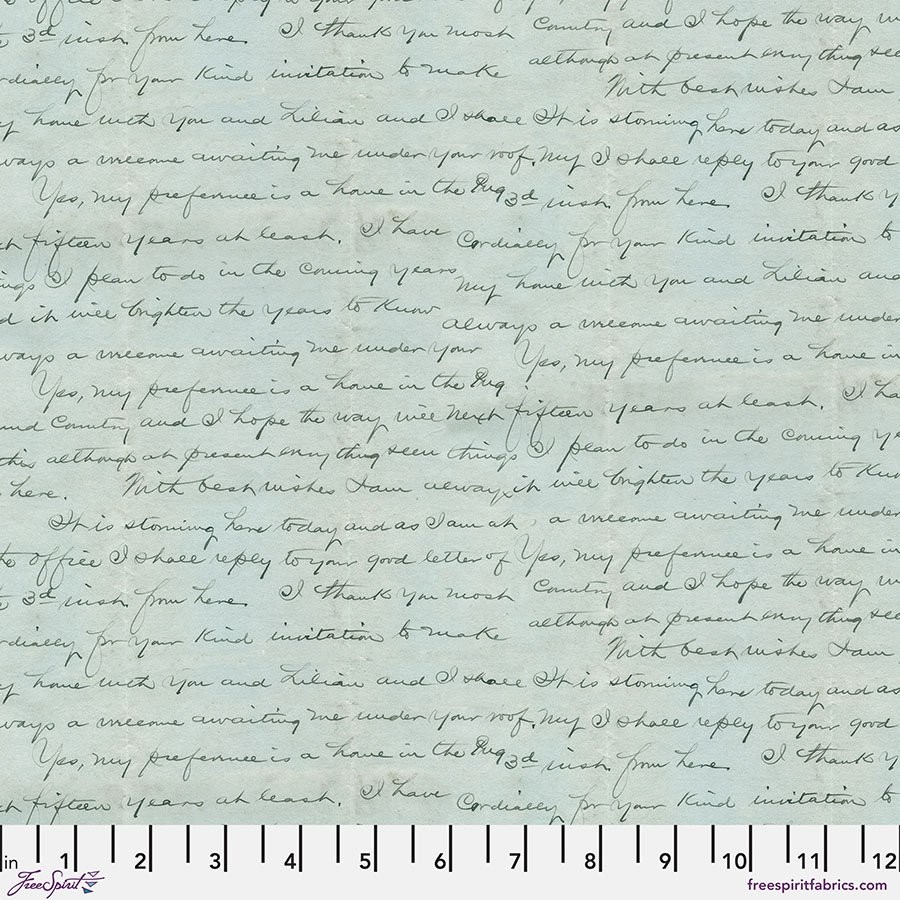 3d inst. from here. I thank you most Country and I hope the way
cordially for your kind invitation to make although at present everything seem
With best wishes I am
my home with you and Lilian and I shall It is storming here today and as
always a welcome awaiting me under your roof. My I shall reply to your good
Yes, my preference is a home in the Pug 3d inst. from here. I thank y
fifteen years at least. I have Cordially for your kind invitation to
things I plan to do in the coming years my home with you and Lilian and
it will brighten the years to know always a welcome awaiting me under
always a welcome awaiting me under your Yes, my preference is a home in
Yes, my preference is a home in the Pug
and Country and I hope the way will next fifteen years at least. I ha
this although at present everything seem things I plan to do in the coming ye
here. With best wishes I am always it will brighten the years to know
It is storming here today and as I am at a welcome awaiting me under
the office I shall reply to your good letter of Yes, my preference is a home in
3d inst. from here. I thank you most Country and I hope the way
cordially for your kind invitation to make although at present everything see
With best wishes I am
my home with you and Lilian and I shall It is storming here today and as
always a welcome awaiting me under your roof. My I shall reply to your good
Yes, my preference is a home in the Pug 3d inst. from here. I thank y
fifteen years at least. I have Cordially for your kind invitation to
in 1 2 3 4 5 6 7 8 9 10 11 12
FreeSpirit
freespiritfabrics.com